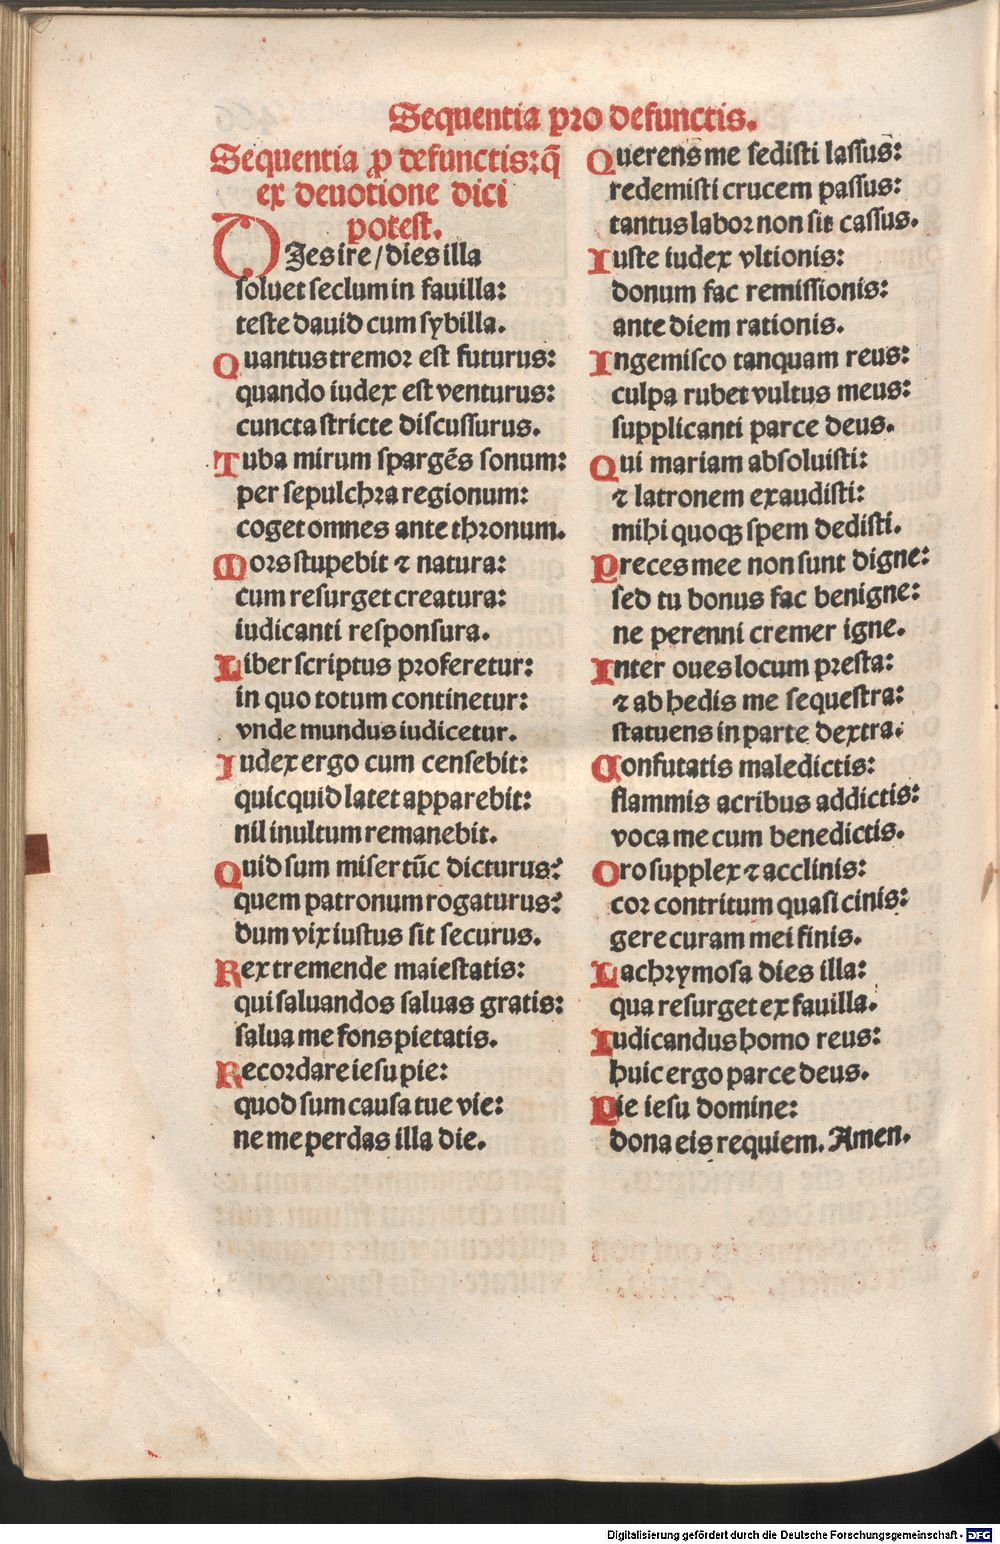 Sequentia pro defunctis.
Sequentia ꝓ defunctis: q̄
ex deuotione dici
potest.
DIes ire / dies illa
soluet seclum in fauilla:
teste dauid cum sybilla.
Quantus tremor est futurus:
quando iudex est venturus:
cuncta stricte discussurus.
Tuba mirum spargēs sonum:
per sepulchra regionum:
coget omnes ante thronum.
Mors stupebit ⁊ natura:
cum resurget creatura:
iudicanti responsura.
Liber scriptus proferetur:
in quo totum continetur:
vnde mundus iudicetur.
Iudex ergo cum censebit:
quicquid latet apparebit:
nil inultum remanebit.
Quid sum miser tūc dicturus?
quem patronum rogaturus?
dum vix iustus sit securus.
Rex tremende maiestatis:
qui saluandos saluas gratis:
salua me fons pietatis.
Recordare iesu pie:
quod sum causa tue vie:
ne me perdas illa die.
Querens me sedisti lassus:
redemisti crucem passus:
tantus labor non sit cassus.
Iuste iudex vltionis:
donum fac remissionis:
ante diem rationis.
Ingemisco tanquam reus:
culpa rubet vultus meus:
supplicanti parce deus.
Qui mariam absoluisti:
⁊ latronem exaudisti:
mihi quoqꝫ spem dedisti.
Preces mee non sunt digne:
sed tu bonus fac benigne:
ne perenni cremer igne.
Inter oues locum presta:
⁊ ab hedis me sequestra:
statuens in parte dextra.
Confutatis maledictis:
flammis acribus addictis:
voca me cum benedictis.
Oro supplex ⁊ acclinis:
cor contritum quasi cinis:
gere curam mei finis.
Lachrymosa dies illa:
qua resurget ex fauilla.
Iudicandus homo reus:
huic ergo parce deus.
Pie iesu domine:
dona eis requiem. Amen.
Digitalisierung gefördert durch die Deutsche Forschungsgemeinschaft - DFG